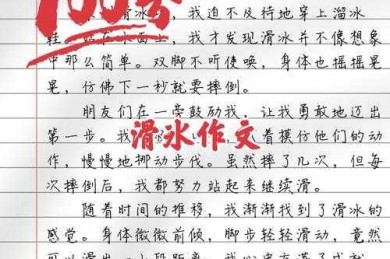 100分
滑冰，我迫不及待地穿上溜冰
在冰面上，我才发现滑冰并不像想象
中那么简单。双脚不听使唤，身体也摇摇晃
晃，仿佛下一秒就要摔倒。
朋友们在一旁鼓励我，让我勇敢地迈出
第一步。我 着摸仿他们的动
滑冰作文
作，慢慢地挪动步伐。虽然摔了几次，但每
次摔倒后，我都努力站起来继续滑。
随着时间的推移，我渐渐找到了滑冰的
感觉。身体微微前倾，脚步轻轻滑动，竟然